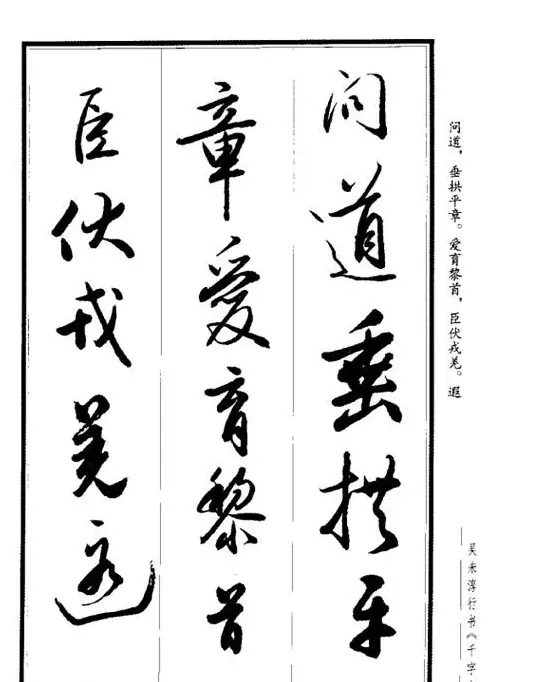 问道垂拱平
章爱育黎首
臣伏戎羌遐
问道，垂拱平章。爱育黎首，臣伏戎羌。遐
吴未淳行书《千字